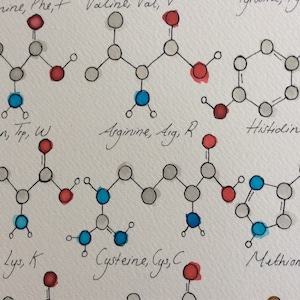 nine, Phe, F Valine, Val, V
n, Tp, W Arginine, Arg, R Histidin
Lys, K Cysteine, Cys, C Methion